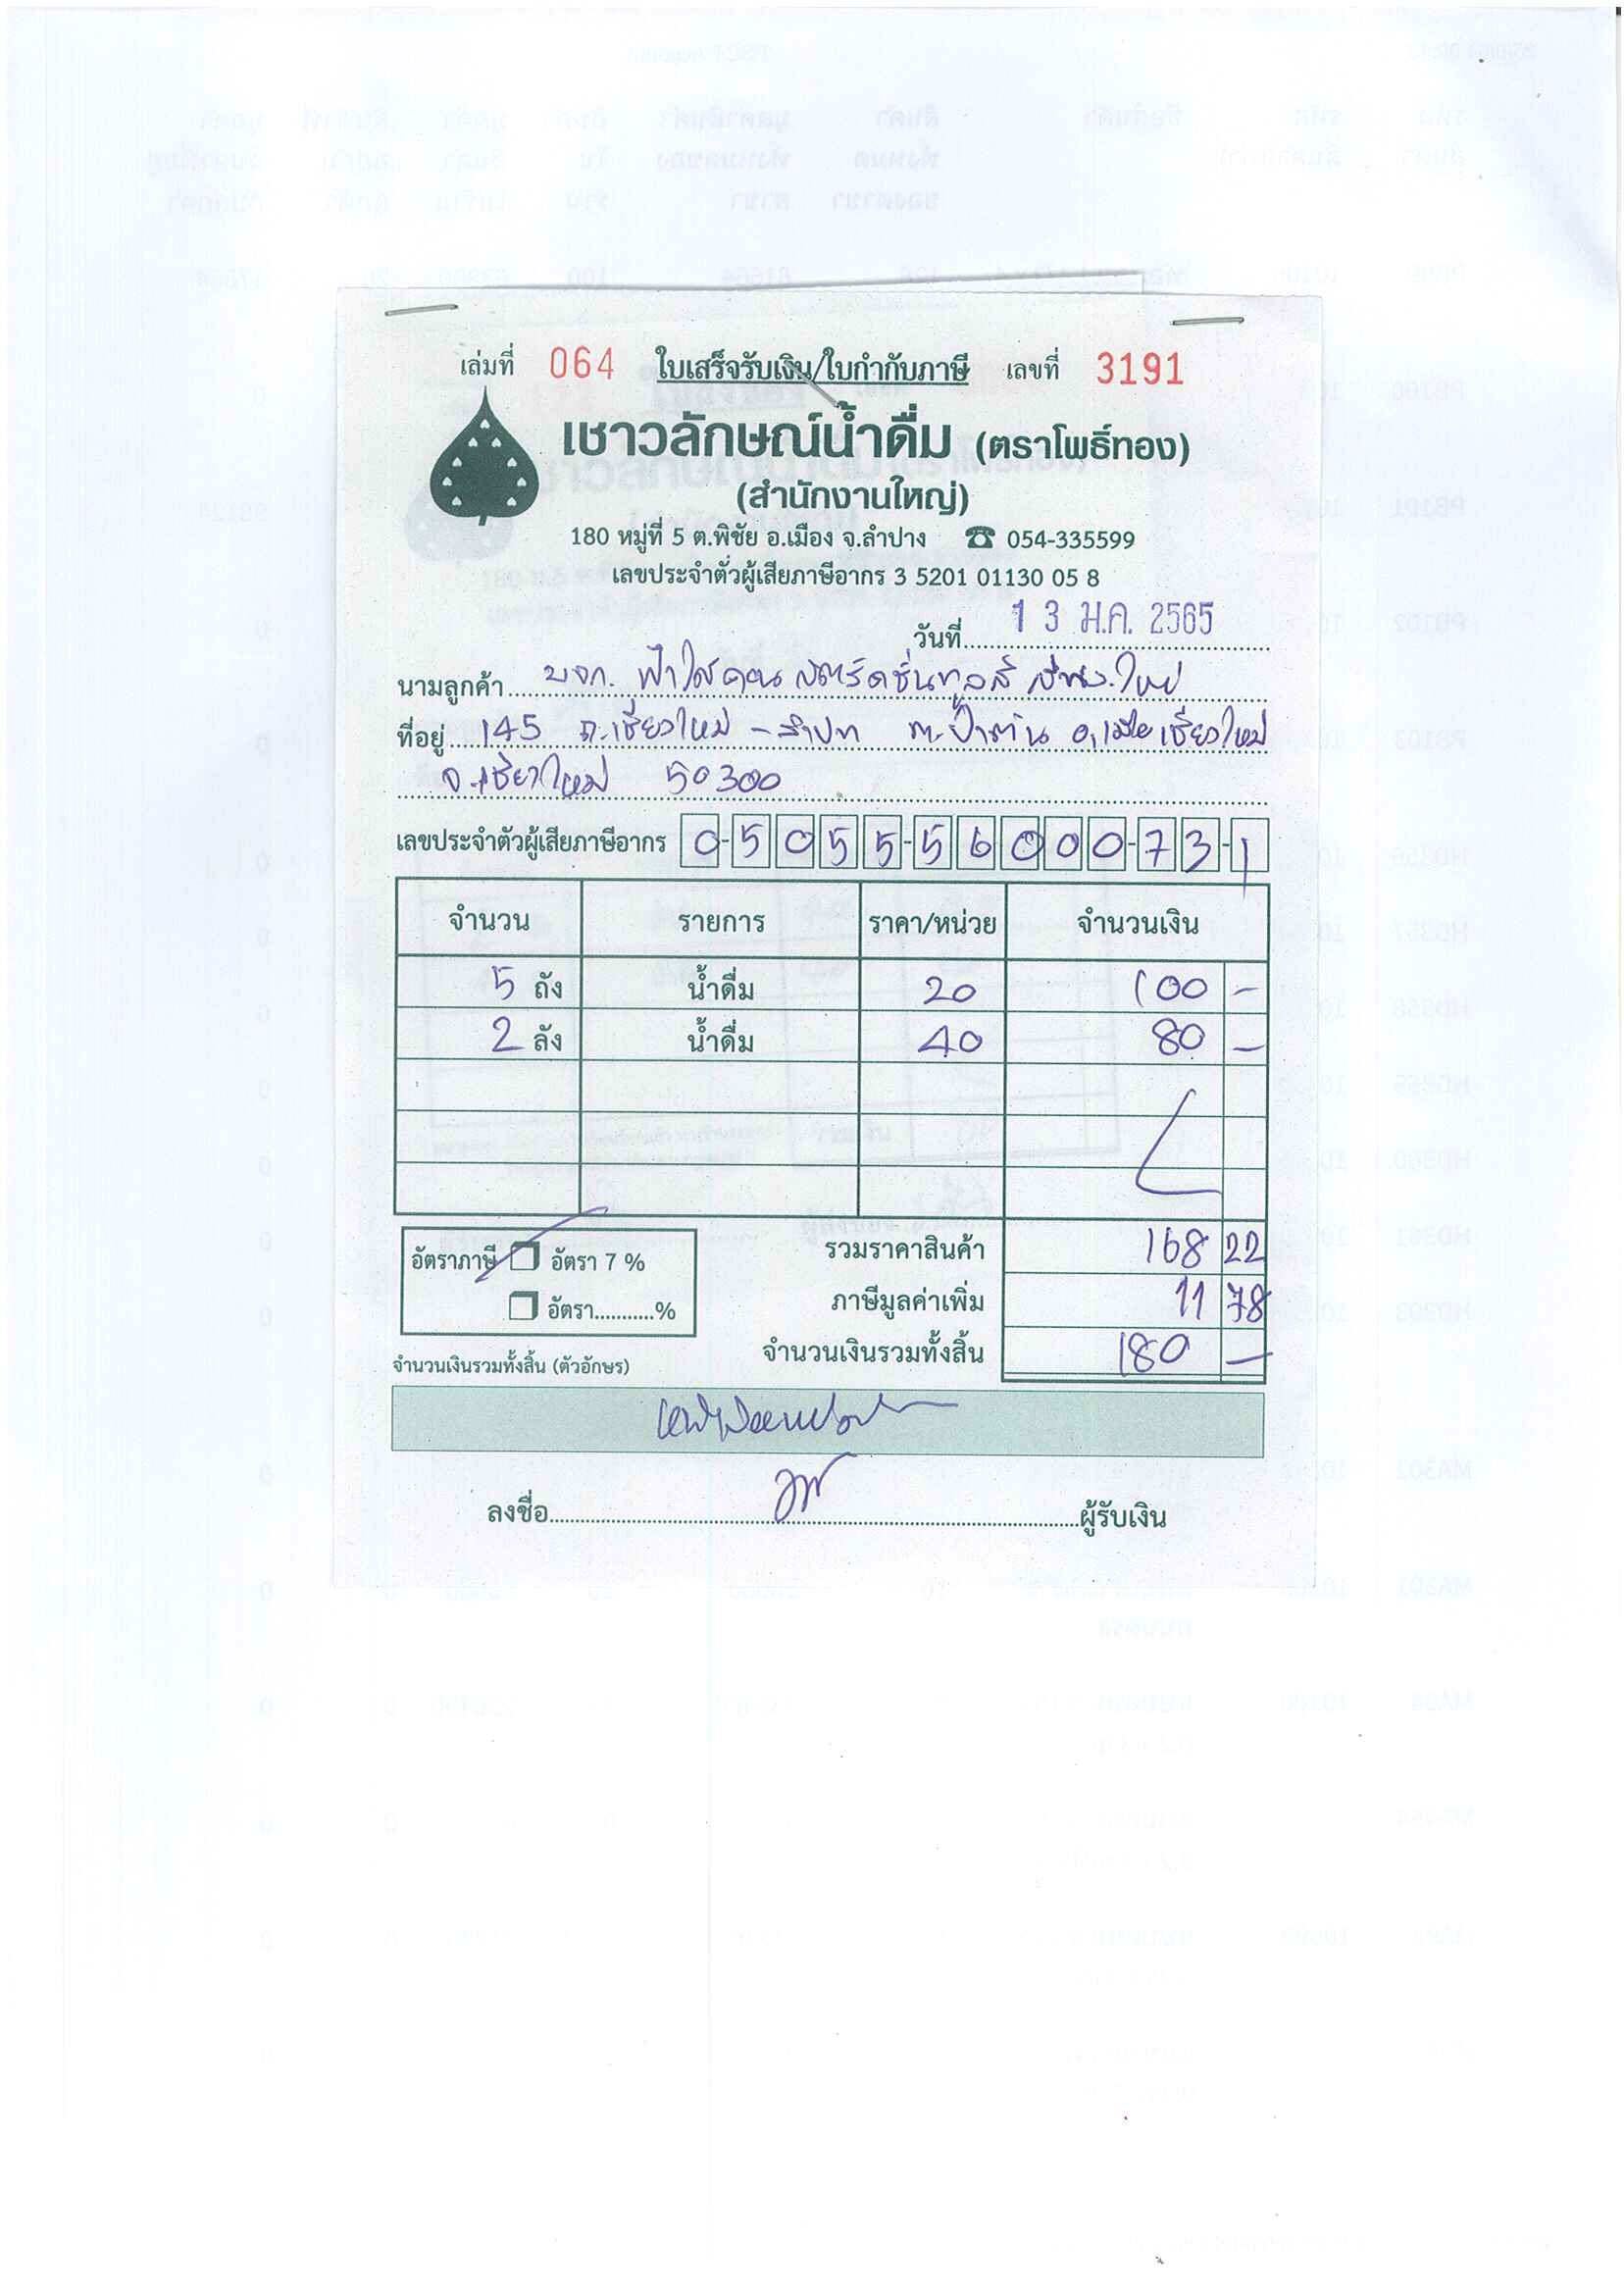 เล่มที่ 064 ใบเสร็จรับเงิน/ใบกำกับภาษี เลขที่ 3191
เชาวลักษณ์น้ำดื่ม (ตราโพธิ์ทอง)
(สำนักงานใหญ่)
180 หมู่ที่ 5 ต.พิชัย อ.เมือง จ.ลำปาง ☎ 054-335599
เลขประจำตัวผู้เสียภาษีอากร 3 5201 01130 05 8
วันที่ 13 ม.ค. 2565
นามลูกค้า บจก. ฟ้าใสคอนสตรัคชั่นทูลส์
ที่อยู่ 145 ถ.เชียงใหม่ - ลำปาง ต.ป่าตัน อ.เมืองเชียงใหม่
จ.เชียงใหม่ 50300
เลขประจำตัวผู้เสียภาษีอากร 0-5055-56000-73-1
จำนวน รายการ ราคา/หน่วย จำนวนเงิน
5 ถัง น้ำดื่ม 20 100 -
2 ลัง น้ำดื่ม 40 80 -
รวมราคาสินค้า 168 22
อัตราภาษี อัตรา 7 %
ภาษีมูลค่าเพิ่ม 11 78
อัตรา...........%
จำนวนเงินรวมทั้งสิ้น 180 -
จำนวนเงินรวมทั้งสิ้น (ตัวอักษร)
ลงชื่อ ผู้รับเงิน